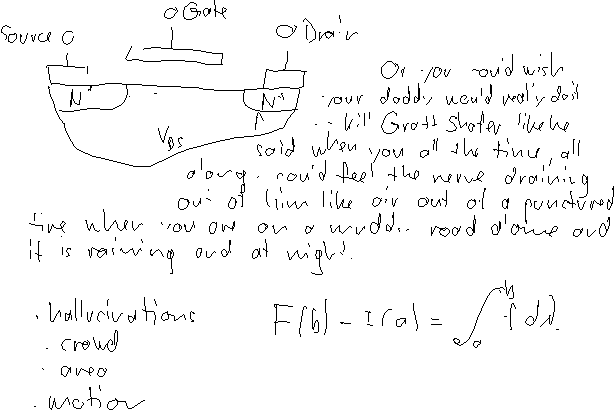 Gate
Source
Drain
N+
N+
V_DS
Or you could wish
your daddy would really do it
kill Gratt Shafer like he
said when you all the time, all
along could feel the nerve draining
out of him like air out of a punctured
tire when you are on a muddy road alone and
it is raining and at night.
. hallucinations
. crowd
. area
. motion
F(b) - F(a) = ∫_a^b f dλ.